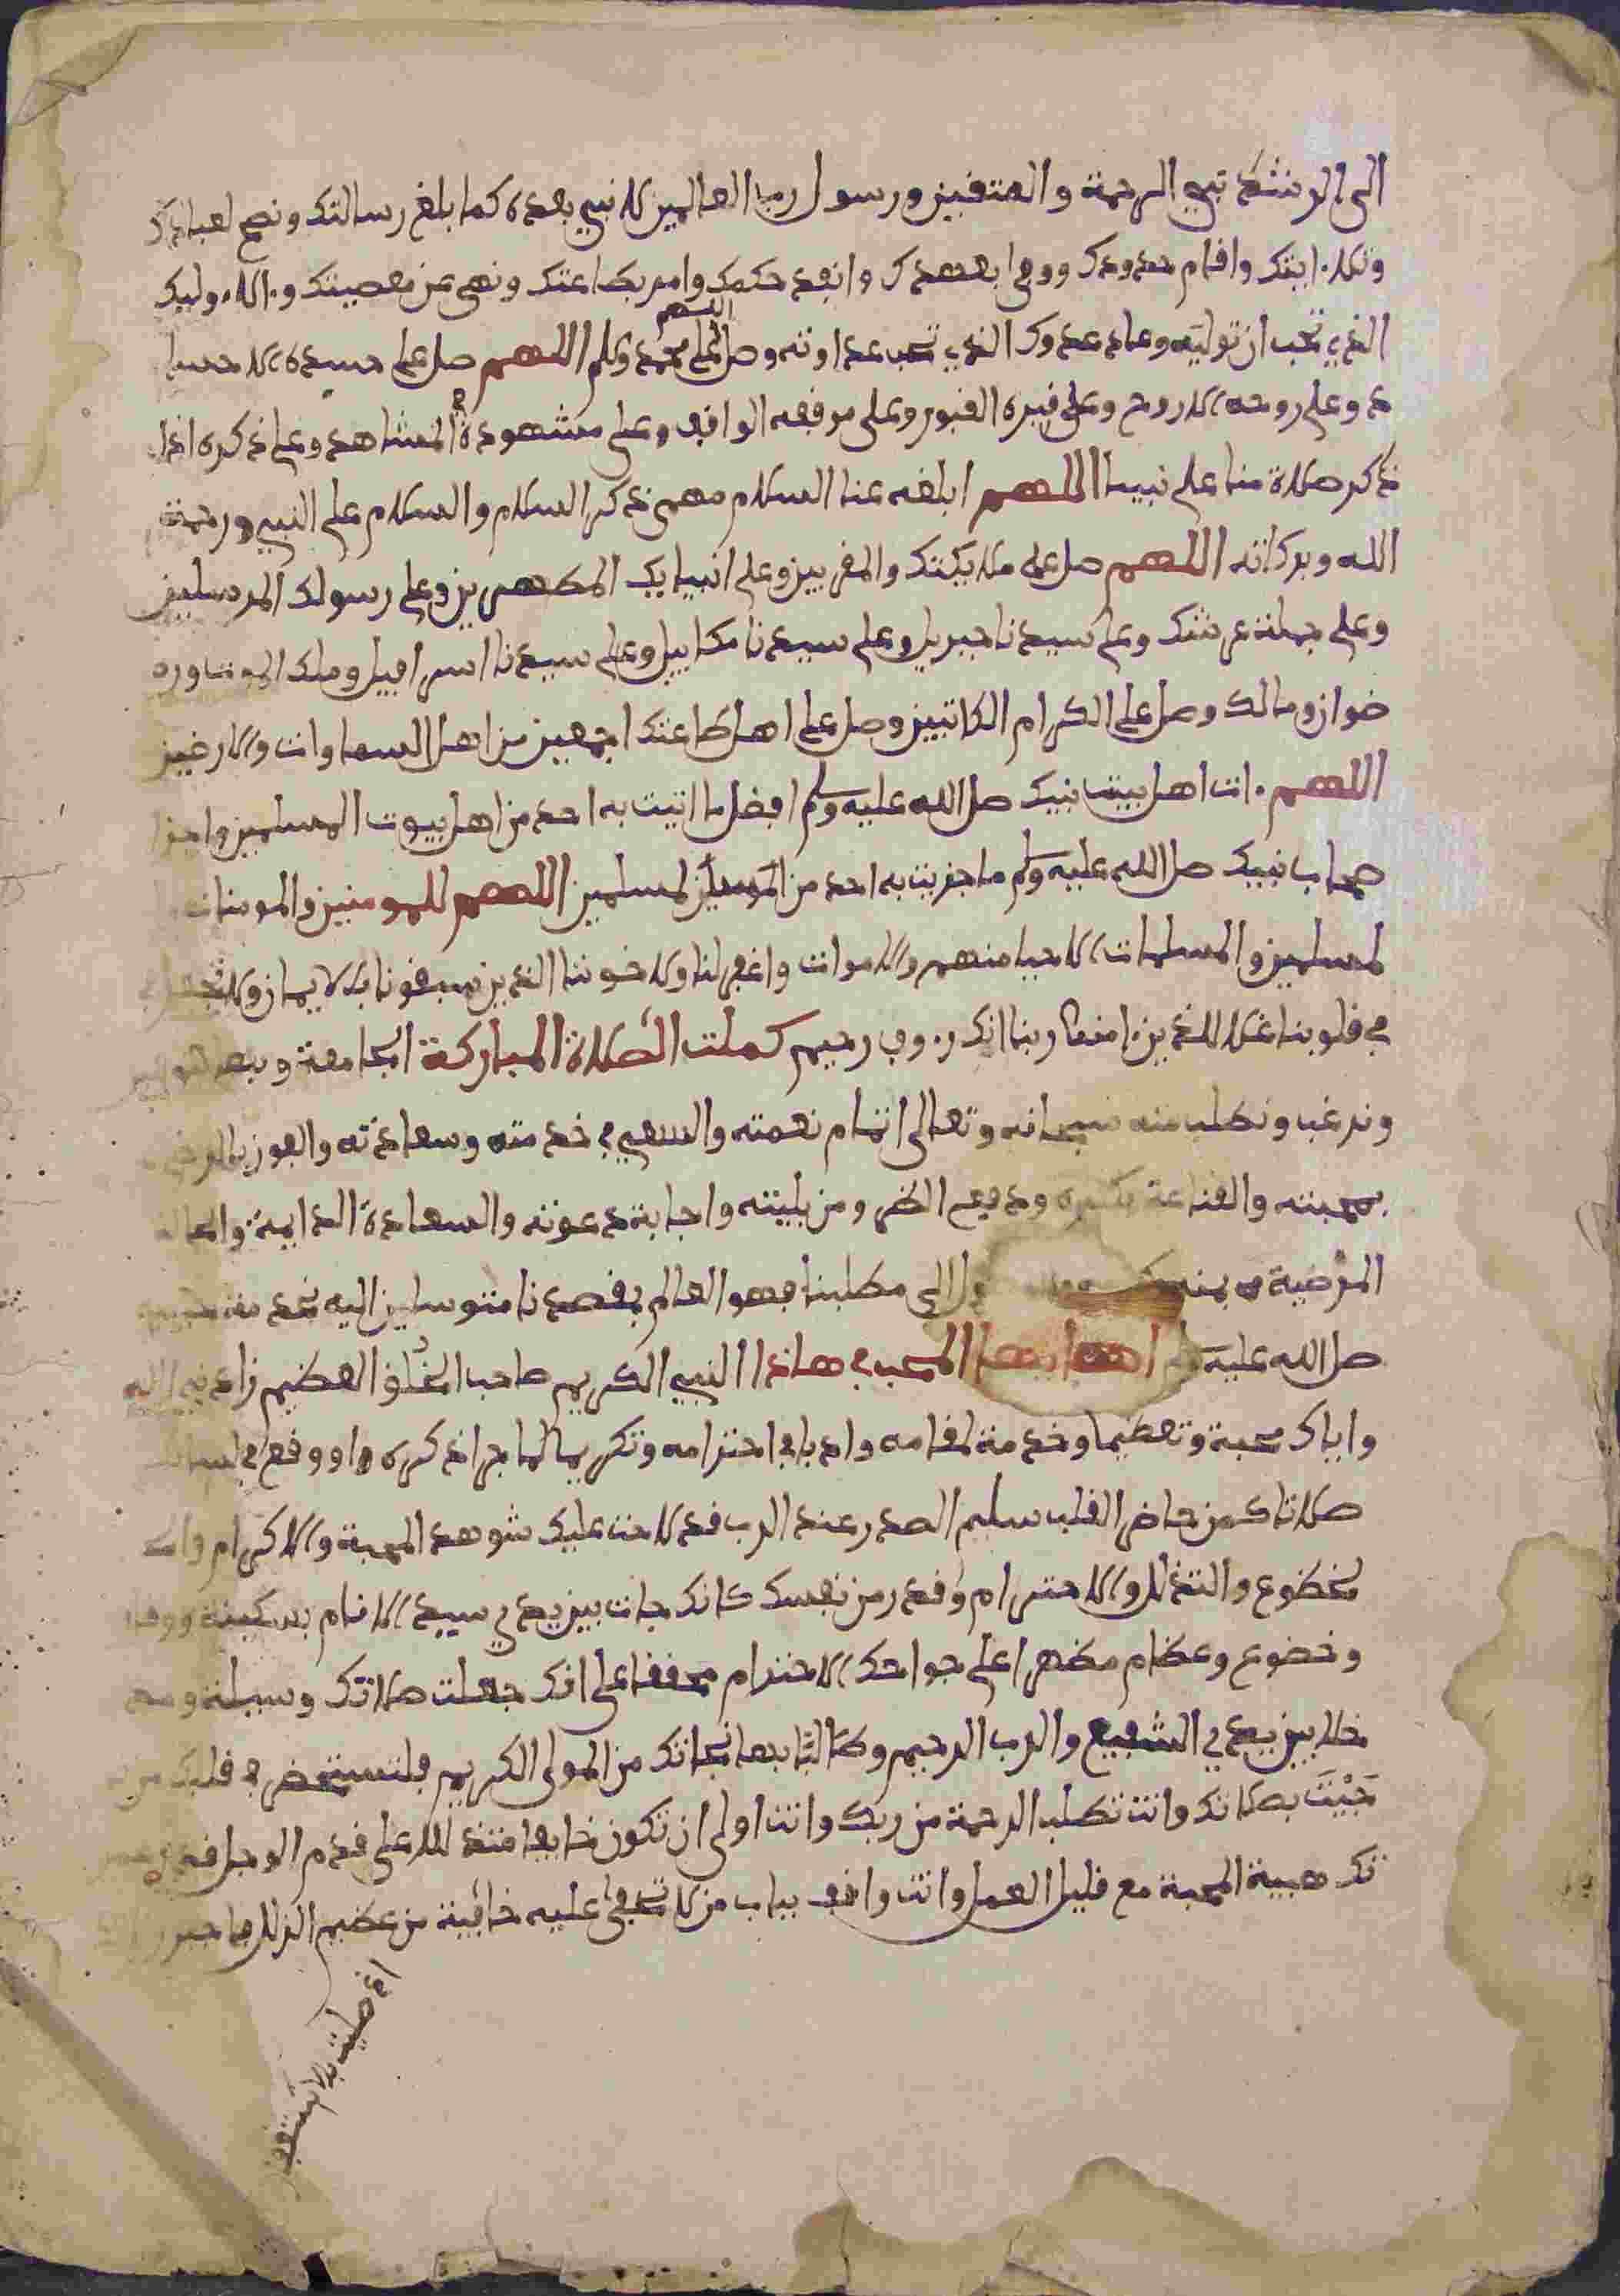 الى الرشد نبي الرحمة والمتقين ورسول رب العالمين لا نبي بعده كما بلغ رسالتك ونصح لعبادك
وتلا ءاياتك واقام حدودك ووفى بعهدك وانفد حكمك وامر بطاعتك ونهى عن معصيتك ووالا وليك
الذي تحب ان توليه وعاد عدوك الذي تحب عداوته وصل اللهم على محمد وسلم اللهم صل على جسده في الاجسا
د وعلى روحه في الارواح وعلى قبره في القبور وعلى موقفه في المواقف وعلى مشهده في المشاهد وعلى ذكره اذا
ذكر صلاة منا على نبينا اللهم ابلغه عنا السلام مهمى ذكر السلام والسلام على النبي ورحمة
الله وبركاته اللهم صل على ملايكتك والمقربين وعلى انبيايك المطهرين وعلى رسولك المرسلين
وعلى حملة عرشك وعلى سيدنا جبريل وعلى سيدنا مكاييل وعلى سيدنا اسرافيل وملك الموت ور
ضوان ومالك وصل على الكرام الكاتبين وصل على اهل طاعتك اجمعين من اهل السماوات والارضين
اللهم ءات اهل بيت نبيك صل الله عليه وسلم افضل ما اتيت به احد من اهل بيوت المسلمين واجز ا
صحاب نبيك صل الله عليه وسلم ما جزيت به احد من المرسلين لمسلمين اللهم للمومنين والمومنات
لمسلمين والمسلمات الاحيا منهم والاموات واغفر لنا ولاخوننا الذين سبقونا بالايمان ولا تجعل
في قلوبنا غلا للذين ءامنوا ربنا انك رءوف رحيم كملت الصلاة المباركة الجامعة وبعد
ونرغب ونطلب منه سبحانه وتعالى اتمام نعمته والسعي في خدمته وسعادته والفوز
بمحبته والقناعة ودفع الضر ومن بليته واجابة دعوته والسعادة الدايمة والحالة
المرضية بمنه الى مطلبنا فهو العالم بقصدنا متوسلين اليه بخدمة
صل الله عليه وسلم المحب في هاذا النبي الكريم صاحب الخلق العظيم زادني الله
واياك محبة وتعظيما وخدمة لمقامه وادبا في احترامه وتكريما لما جرا ذكره او وقع في
صلاتك من حاضر القلب سليم الصدر عند الرب قد لاحت عليك شوهد المحبة والاكرام
لخضوع والتذلل والاحترام وقدر من نفسك كانك جات بين يدي سيد الانام بسكينة ووقا
وخضوع وعظام مظهرا على جوارحك الاحترام محققا على انك جعلت صلاتك وسيلة
خلا بين يدي الشفيع والرب الرحيم وطالبا بها نجاتك من المولى الكريم فلتستحضر في قلبك
جيت بصلاتك وانت تطلب الرحمة من ربك وانت اولى ان تكون خايفا متذللا على قدم الوجل
تك هيبة المحبة مع قليل العمل وانت واقف بباب من لا تخفى عليه خافية من عظيم الزلل